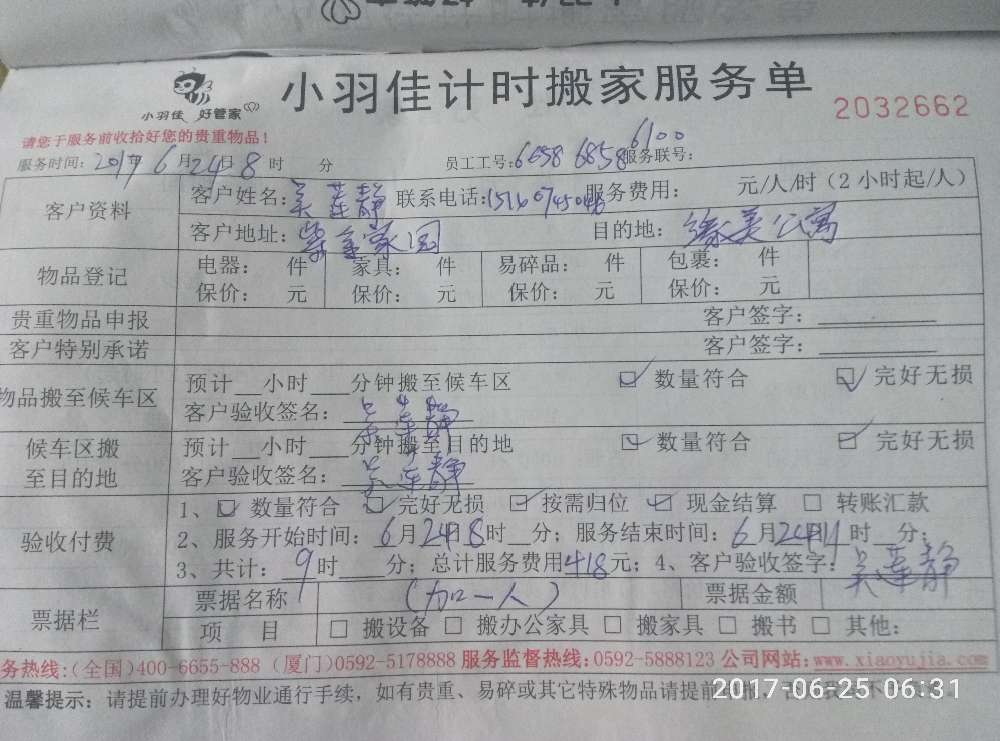 小羽佳计时搬家服务单
小羽佳 好管家
2032662
请您于服务前收拾好您的贵重物品!
服务时间: 2017年6月24日8时 分 员工工号: 6058 6858 6100 服务联号:
客户资料 客户姓名: 吴莲静 联系电话: 服务费用: 元/人/时(2小时起/人)
客户地址: 紫金家园 目的地: 缘美公寓
物品登记 电器: 件 家具: 件 易碎品: 件 包裹: 件
保价: 元 保价: 元 保价: 元 保价: 元
贵重物品申报 客户签字:
客户特别承诺 客户签字:
物品搬至候车区 预计 小时 分钟搬至候车区 数量符合 完好无损
客户验收签名: 吴莲静
候车区搬至目的地 预计 小时 分钟搬至目的地 数量符合 完好无损
客户验收签名: 吴莲静
验收付费 1、 数量符合 完好无损 按需归位 现金结算 转账汇款
2、服务开始时间: 6月24日8时 分; 服务结束时间: 6月24日11时 分;
3、共计: 9时 分; 总计服务费用418元; 4、客户验收签字: 吴莲静
票据栏 票据名称 (加一人) 票据金额
项 目 搬设备 搬办公家具 搬家具 搬书 其他:
务热线:(全国)400-6655-888 (厦门)0592-5178888 服务监督热线:0592-5888123 公司网站:www.xiaoyujia.com
温馨提示: 请提前办理好物业通行手续,如有贵重、易碎或其它特殊物品请提前
2017-06-25 06:31